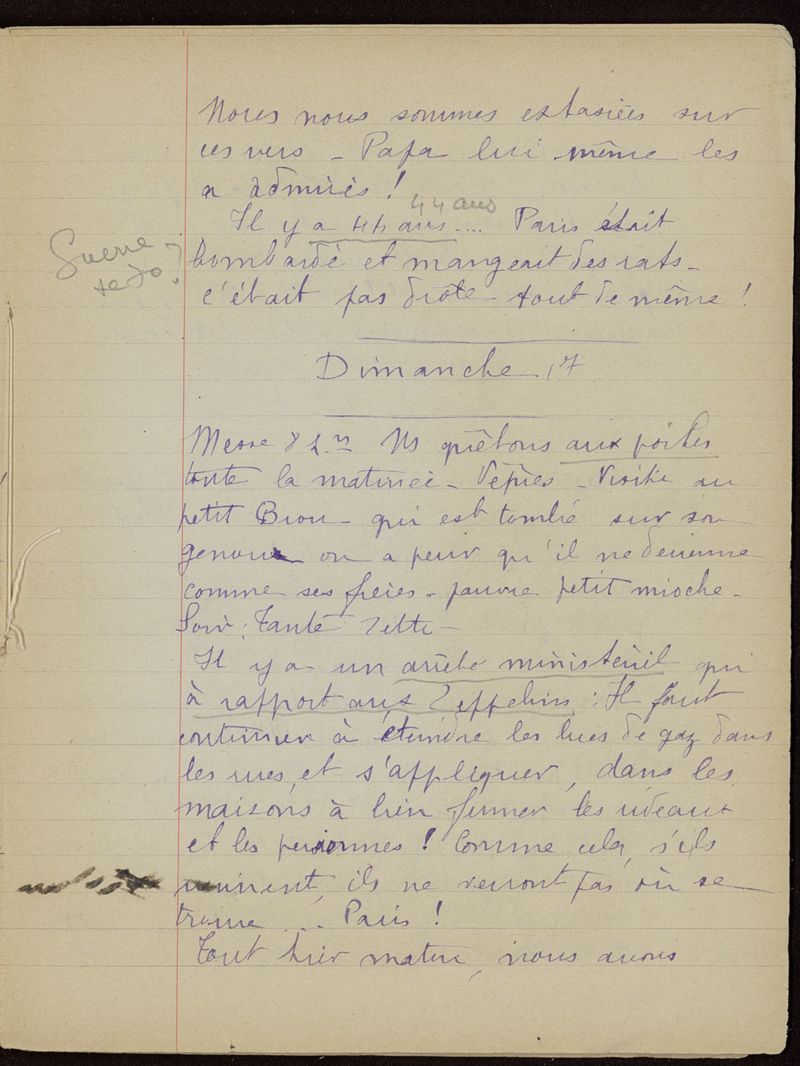 Nous nous sommes extasiées sur
ces vers _ Papa lui même les
a admirés !
44 ans
Il y a 44 ans .... Paris était
Guerre
de 70 ?
bombardé et mangeait des rats _
c'était pas drôle tout de même !
Dimanche 17
Messe 8 h. Ns quêtons aux portes
toute la matinée _ Vêpres _ Visite au
petit Brou _ qui est tombé sur son
genoux on a peur qu'il ne devienne
comme ses frères _ pauvre petit mioche _
Soir : Tante
Il y a un arrêté ministériel qui
à rapport aux Zeppelins : Il faut
continuer à éteindre les becs de gaz dans
les rues, et s'appliquer, dans les
maisons à bien fermer les rideaux
et les persiennes ! Comme cela, s'ils
viennent, ils ne verront pas où se
trouve ... Paris !
Tout hier matin, nous avons